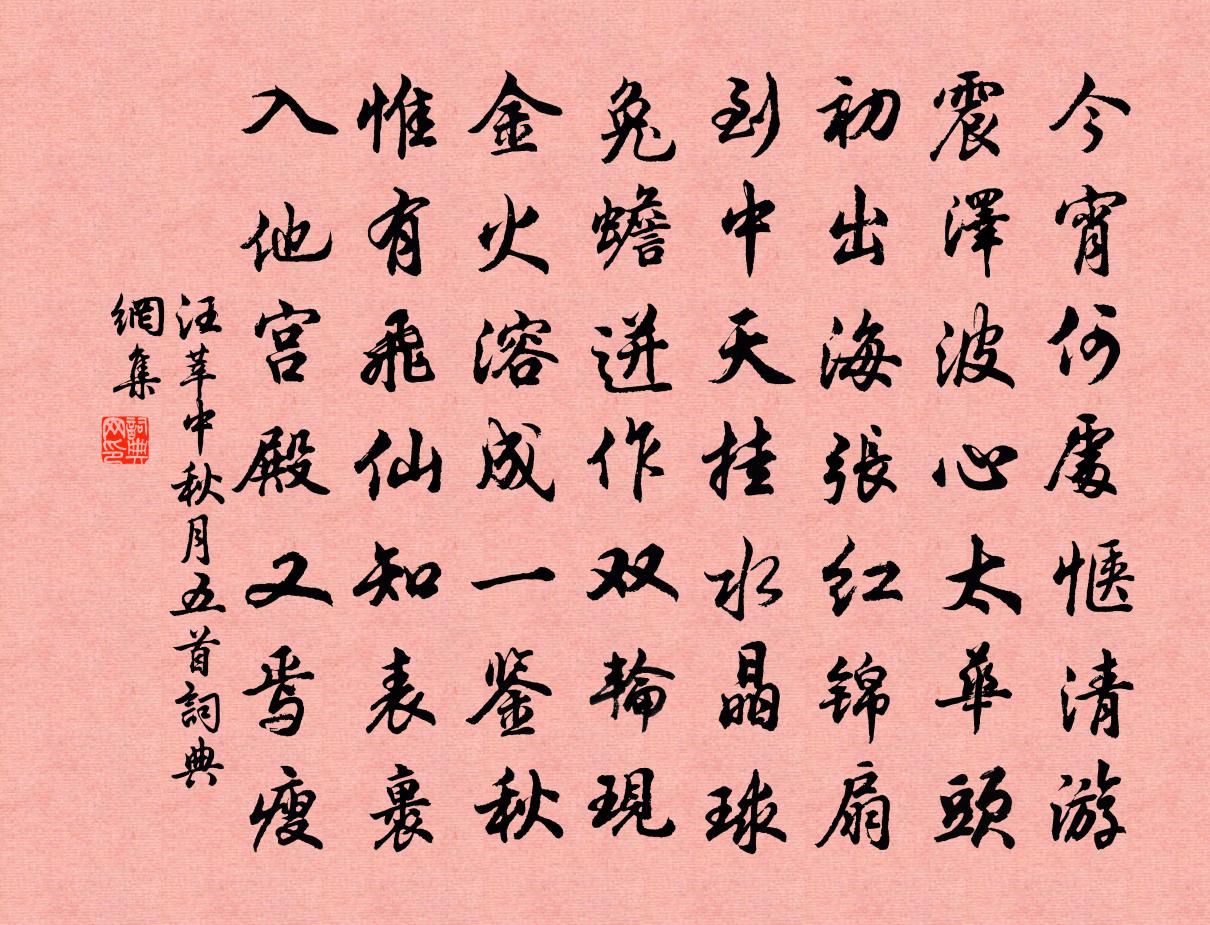 今宵何處惬清游
震澤波心太華頭
初出海張红锦扇
到中天挂水晶球
兔蟾迸作双輪現
金火溶成一鉴秋
惟有飛仙知表裏
入他宫殿又焉瘦
汪莘中秋月五首詞典
網集
詞典
网印